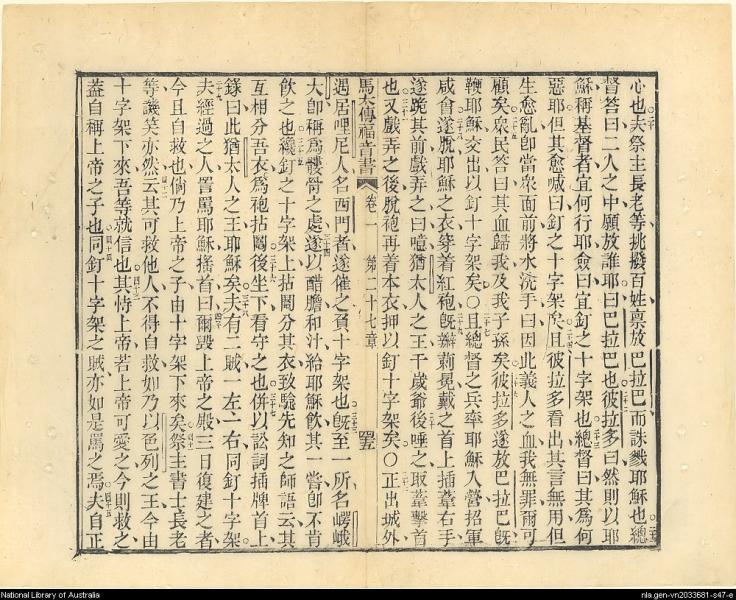 心也夫祭主長老等挑撥百姓稟放巴拉巴而誅戮耶穌也總
督答曰二人之中願放誰耶曰巴拉巴也彼拉多曰然則以耶
穌稱基督者宜何行耶僉曰宜釘之十字架也總督曰其爲何
惡耶但其愈喊曰釘之十字架矣且彼拉多看出其言無用但
生愈亂卽當眾面前將水洗手曰因此義人之血我無罪爾可
顧矣眾民答曰其血歸我及我子孫矣彼拉多遂放巴拉巴旣
鞭耶穌交出以釘十字架矣○且總督之兵率耶穌入營招軍
咸會遂脫耶穌之衣穿着紅袍旣辮荊冕戴之首上插葦右手
遂跪其前戲弄之曰噫猶太人之王千歲爺後唾之取葦擊首
也又戲弄之後脫袍再着本衣押以釘十字架矣○正出城外
馬太傳福音書 卷一 第二十七章 四五
遇居哩尼人名西門者遂催之負十字架也旣至一所名 峨
大卽稱爲髏骨之處遂以醋膽和汁給耶穌飲其一嘗卽不肯
飲之也纔釘之十字架上拈鬮分其衣致驗先知之師語云其
互相分吾衣爲袍拈鬮後坐下看守之也併以訟詞插牌首上
錄曰此猶太人之王耶穌矣夫有二賊一左一右同釘十字架
夫經過之人詈罵耶穌搖首曰爾毀上帝之殿三日復建之者
今且自救也倘乃上帝之子由十字架下來矣祭主書士長老
等譏笑亦然云其可救他人不得自救如乃以色列之王今由
十字架下來吾等就信也其恃上帝若上帝可愛之今則救之
蓋自稱上帝之子也同釘十字架之賊亦如是罵之焉夫自正
National Library of Australia
nla.gen-vn2033681-s47-e